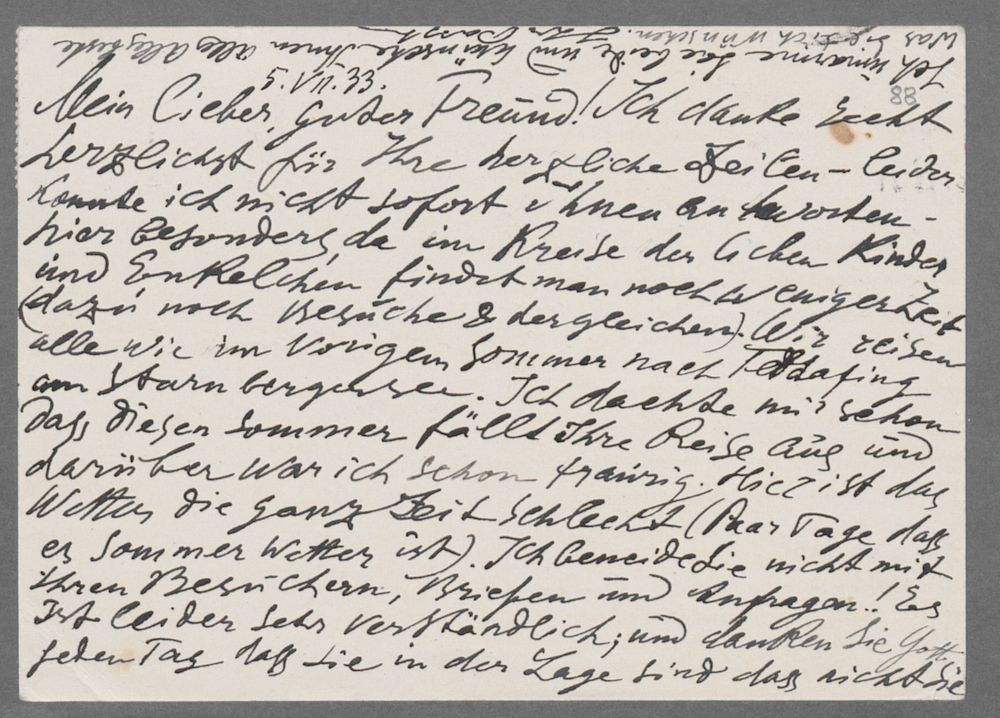 5.VII.33.
Mein Lieber, guter Freund! Ich danke Recht
herzlichst für Ihre herzliche Zeilen – leider
konnte ich nicht sofort Ihnen antworten –
hier besonders, da im Kreise der lieben Kinder
und Enkelchen findet man noch weniger Zeit
(dazu noch Besuche & dergleichen). Wir reisen
alle wie im vorigem Sommer nach Feldafing
am Starnbergersee. Ich dachte mir schon
dass diesen Sommer fällt Ihre Reise aus und
darüber war ich schon traurig. Hier ist das
Wetter die ganz Zeit schlecht (Paar Tage dass
es Sommer Wetter ist). Ich beneide Sie nicht mit
Ihren Besuchern, Briefen und Anfragen..! Es
ist leider sehr verständlich, und danken Sie Gott
jeden Tag dass Sie in der Lage sind dass nicht Sie
was Sie sich wünschen.
Ich umarme Sie beide und wünsche Ihnen alles Allerbeste
88